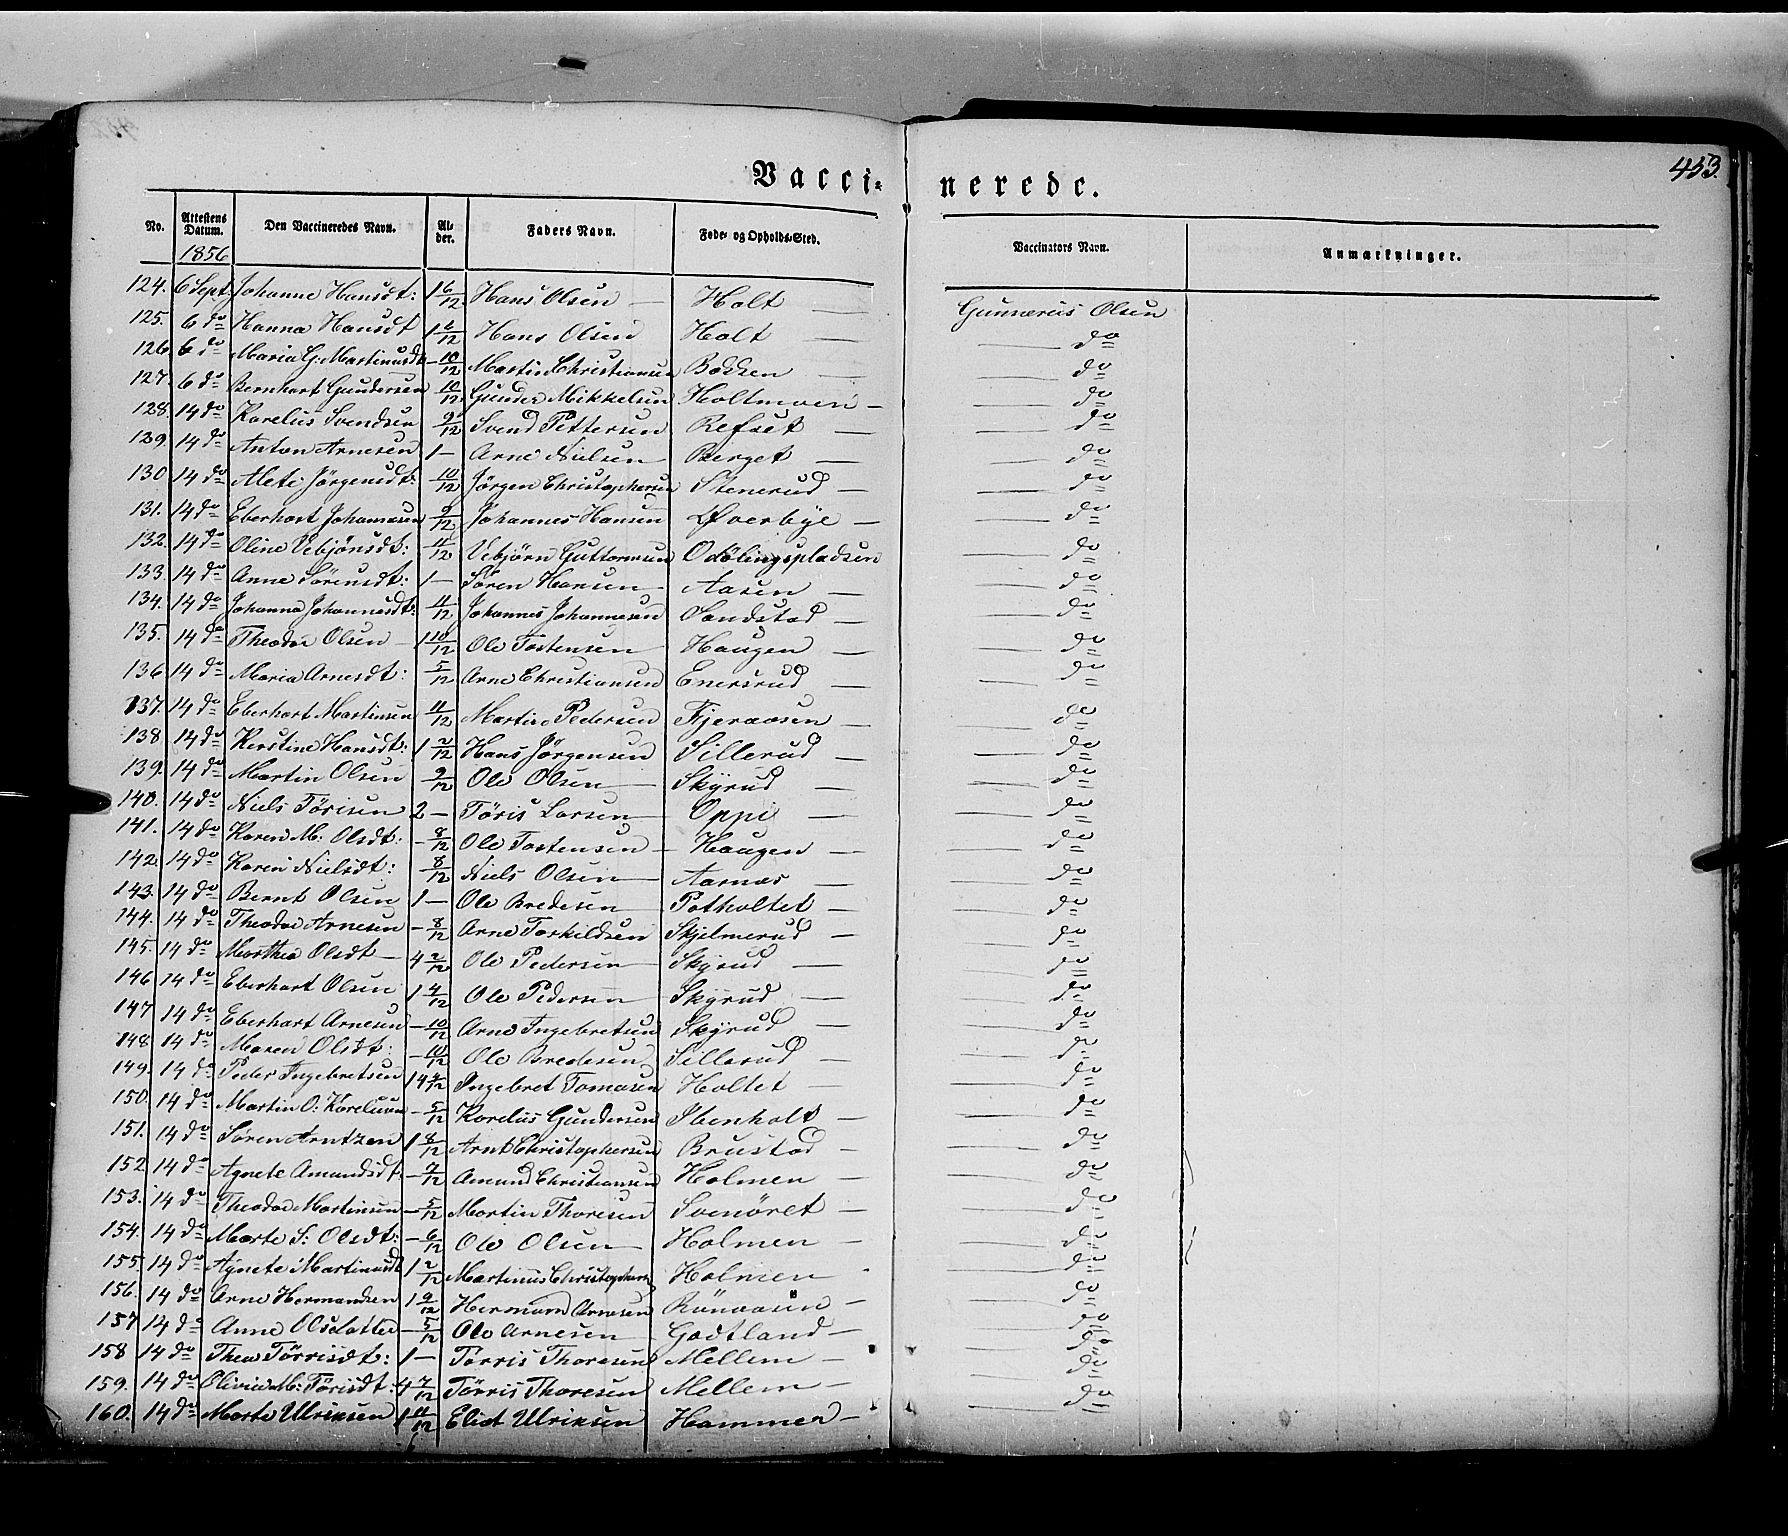 453.
Vacci- nerede.
No. Attestens Datum. Den Vaccineredes Navn. Al- der. Faders Navn. Føde- og Opholds-Sted. Vaccinators Navn. Anmærkninger.
1856
124. 6 Sept. Johanne Hansdt: 1 6/12 Hans Olsen — Holt — Gunnerius Olsen
125. 6 do Hanna Hansdt 1 6/12 Hans Olsen Holt — do
126. 6 do Maria G: Martinusdt — 10/12 Martin Christiansen — do
127. 6 do Bernhart Gundersen 10/12 Gunder Mikkelsen Holtmoen — do
128. 14 do Karelius Svendsen 9/12 Svend Pettersen Refset — do
129. 14 do Anton Arnesen 1 — Arne Nielsen Berget — do
130 14 do Alete Jørgensdt: 10/12 Jørgen Christophersen Stenerud — do
131. 14 do Eberhart Johannesen 9/12 Johannes Hansen Øverbye — do
132. 14 do Oline Vebjønsdt: 11/12 Vebjørn Guttormsen Odølingspladsen do
133. 14 do Anne Sørensdt: 1 — Søren Hansen — Aasen — do
134. 14 do Johanna Johannesdt: 11/12 Johannes Johannesen Sandstad — do
135. 14 do Theodor Olsen — 1 10/12 Ole Tostensen Haugen — do
136 14 do Maria Arnesdt: 5/12 Arne Christiansen Enersrud — do
137. 14 do Eberhart Martinsen 11/12 Martin Pedersen Fjeraasen — do
138 14 do Kerstine Hansdt: 1 2/12 Hans Jørgensen Sillerud — do
139. 14 do Martin Olsen 9/12 Ole Olsen — Skyrud — do
140. 14 do Niels Tørisen 2 — Tøris Larsen Oppi — do
141. 14 do Karen M: Olsdt: — 8/12 Ole Tostensen — Haugen — do
142. 14 do Karen Nielsdt: 8/12 Niels Olsen — Aarnæs — do
143. 14 do Bernt Olsen 1 — Ole Bredesen Potholtet — do
144. 14 do Theodor Arnesen — 8/12 Arne Torkildsen Skjelmerud — do
145. 14 do Marthea Olsdt — 4 2/12 Ole Pedersen Skyrud — do
146 14 do Eberhart Olsen 1 4/12 Ole Pedersen Skyrud — do
147 14 do Eberhart Arnesen — 10/12 Arne Ingebretsen Skyrud — do
148 14 do Maren Olsdt: — 10/12 Ole Bredesen Sillerud — do
149. 14 do Peder Ingebretsen 1 4/12 Ingebret Tomasen Holtet — do
150. 14 do Martin O: Karelusen — 5/12 Karelius Gundersen Ibenholt — do
151. 14 do Søren Arntzen 1 8/12 Arnt Christophersen Brustad — do
152 14 do Agnete Amundsdt. — 7/12 Amund Christiansen Holmen — do
153. 14 do Theodor Martinsen — 5/12 Martin Thoresen Svenöret — do
154. 14 do Marte S: Olsdt: — 6/12 Ole Olsen — Holmen — do
155. 14 do Agnete Martinusdt 1 2/12 Martinus Christophersen Holmen do
156. 14 do Arne Hermandsen 1 9/12 Hermand Arnesen Rönaasen — do
157 14 do Anne Olsdatter — 5/12 Ole Arnesen Godtland — do
158 14 do Thea Tørrisdt: 1 — Tørris Thoresen Mellem — do
159. 14 do Olivia M: Tørisdt: 4 7/12 Tørris Thoresen Mellem — do
160. 14 do Marte Ulriksen 1 11/12 Ulriksen Hammer — do